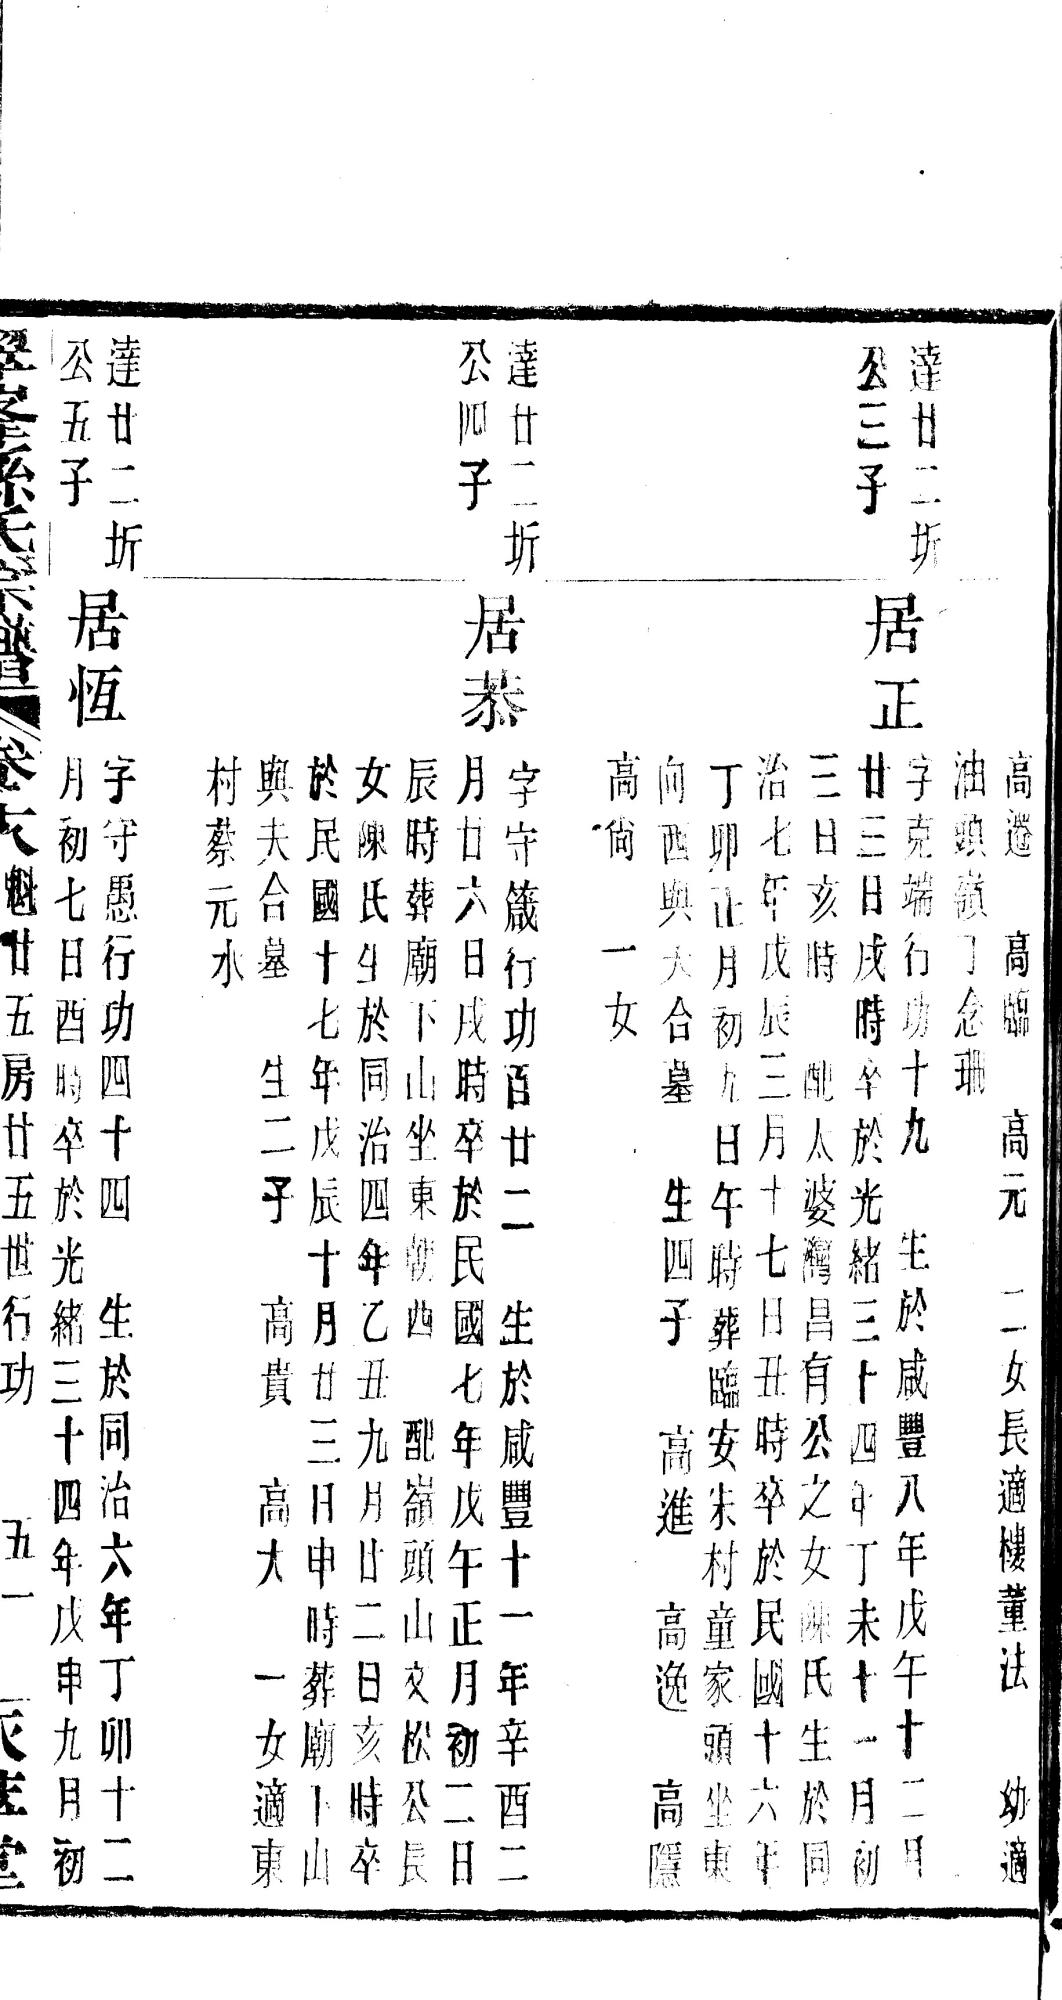 高遷　高臨　高元　二女長適樓董法　幼適
油頭嶺丁念珊
達廿二坼
公三子
居正
字克端行功十九　生於咸豐八年戊午十二月
廿三日戌時卒於光緒三十四年丁未十一月初
三日亥時　配太婆灣昌有公之女陳氏生於同
治七年戊辰三月十七日丑時卒於民國十六年
丁卯正月初九日午時葬臨安朱村童家頭坐東
向西與大合墓　生四子　高進　高逸　高隱
高尙　一女
達廿二坼
公四子
居恭
字守箴行功百廿二　生於咸豐十一年辛酉二
月廿六日戌時卒於民國七年戊午正月初二日
辰時葬廟下山坐東朝西　配嶺頭山文松公長
女陳氏生於同治四年乙丑九月廿二日亥時卒
於民國十七年戊辰十月廿三日申時葬廟下山
與夫合墓　生二子　高貴　高大　一女適東
村蔡元水
達廿二坼
公五子
居恆
字守愚行功四十四　生於同治六年丁卯十二
月初七日酉時卒於光緒三十四年戊申九月初
孫氏宗譜　卷六　魁廿五房廿五世行功　五一